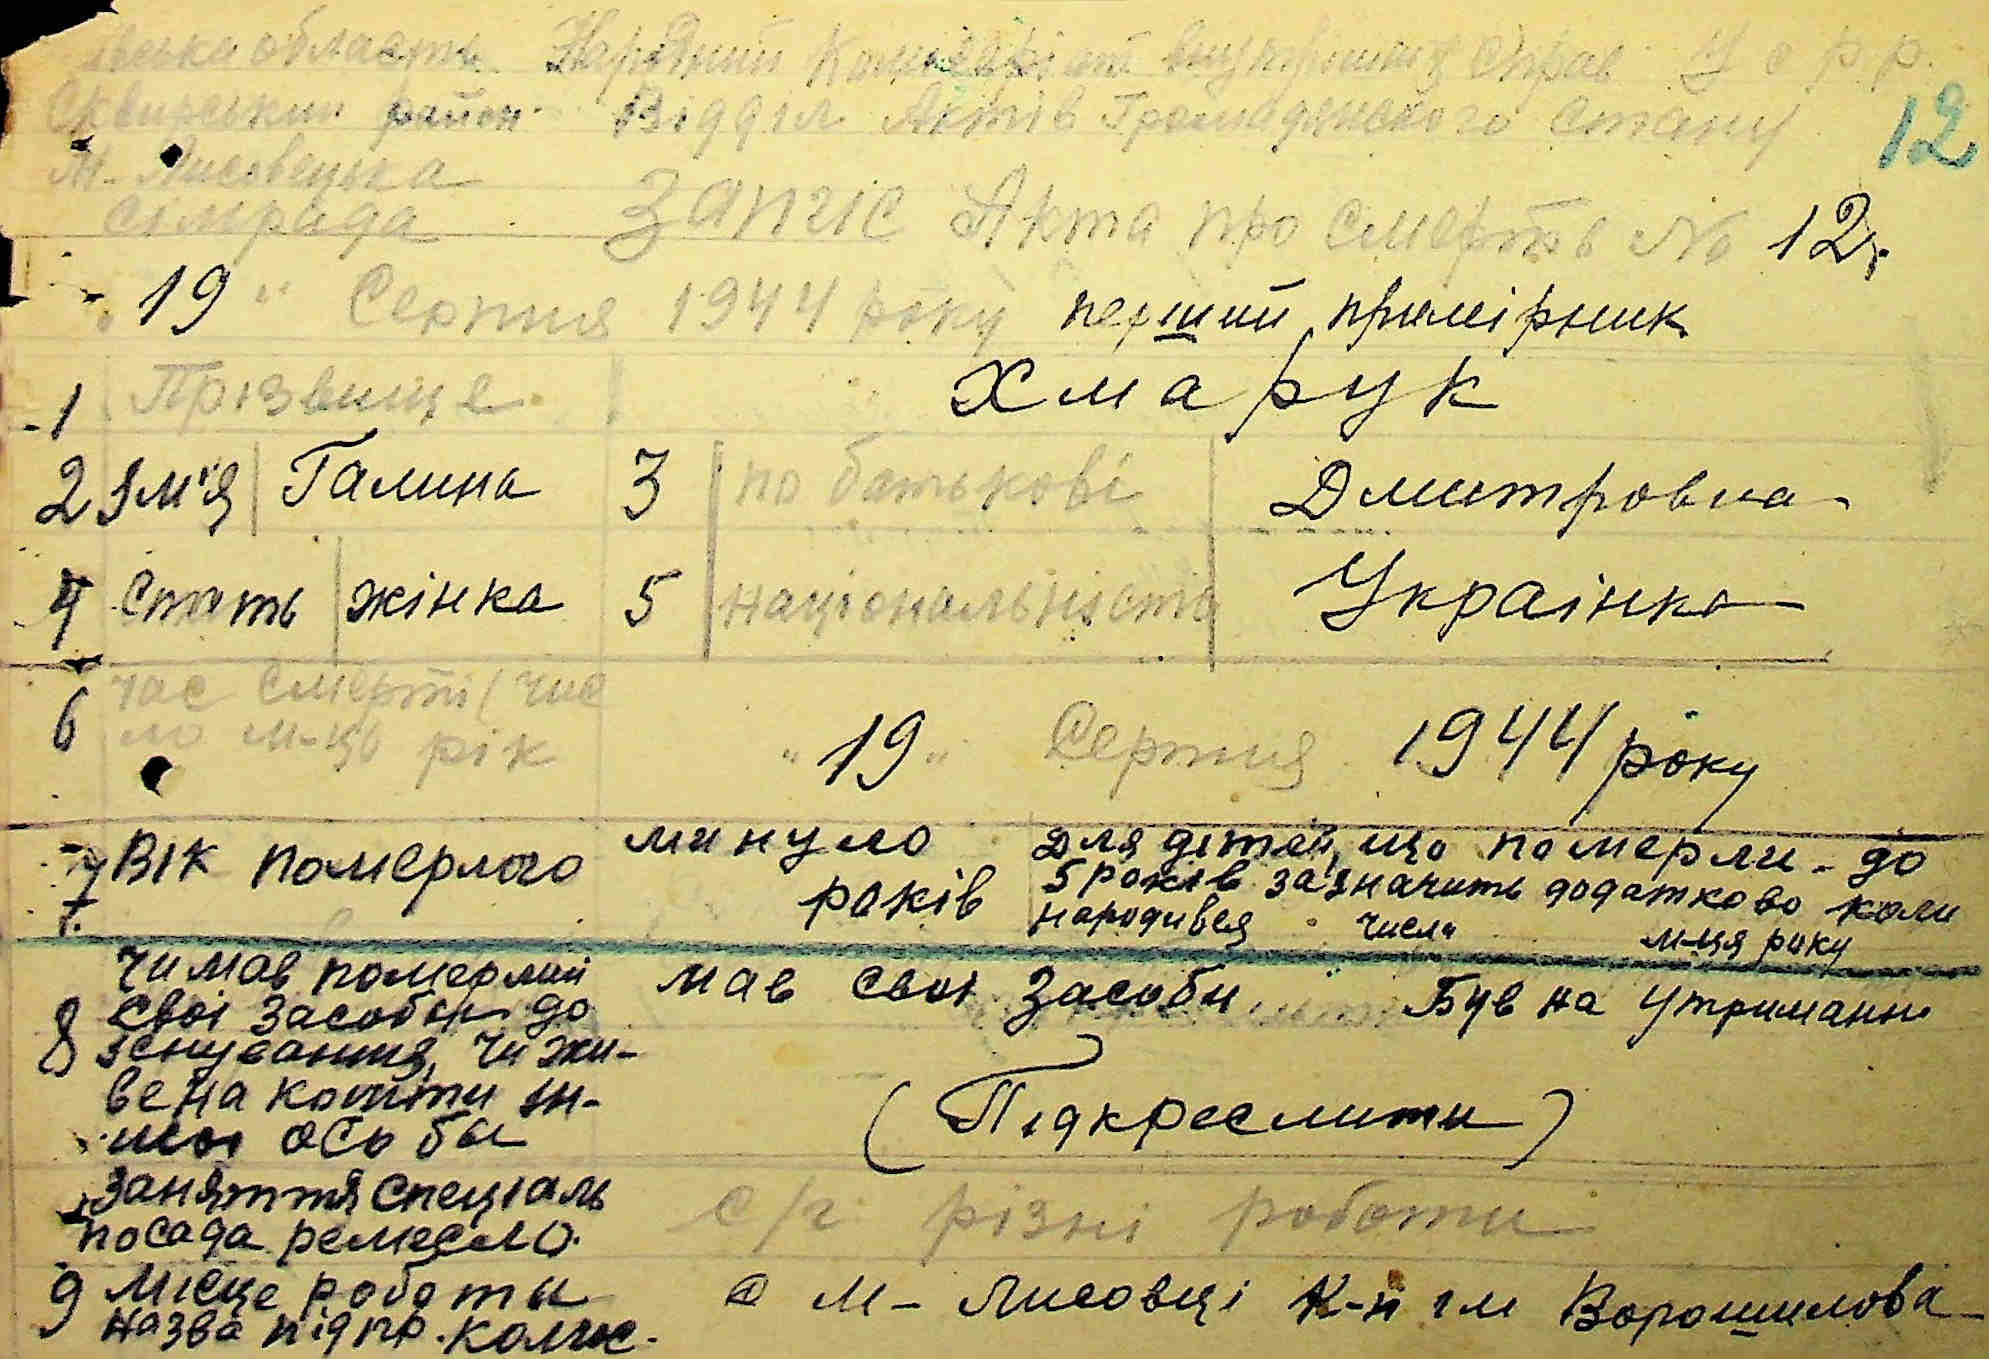 вська область Народний Комісаріат внутрішніх справ У с р р.
Сквирський район Відділ Актів Громадянского стану 12
М-Лисовецька
сільрада Запис Акта про смерть № 12.
" 19 " Серпня 1944 року перший примірник
1 Прізвище Хмарук
2 Ім'я Галина 3 по батькові Дмитровна
4 Стать жінка 5 національність Українка
6 час смерті (чис
ло м-ць рік "19" Серпня 1944 року
7 Вік померлого минуло років
Для дітей, що померли до
5 років зазначить додатково коли
народився числа м-ця року
8 чи мав померлий
свої засоби до
існування, чи жи-
ве на кошти ін-
шої особы
мав свої засоби Був на утриманні
(Підкреслити)
заняття спеціаль
посада ремесло. с/г різні роботи
9 місце роботы
назва підпр. колгос.
с М-Лисовці К-п ім Ворошилова